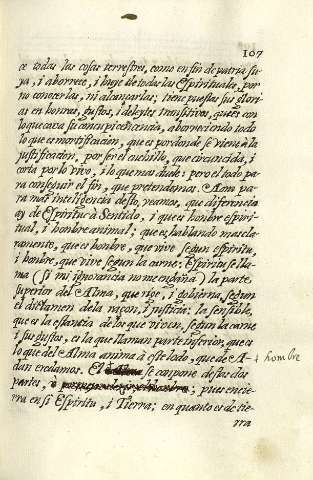 107
ce todas las cosas terrestres, como en fin de patria su-
ya, i aborrece, i huye de todas las Espirituales, por
no conocerlas, ni alcançarlas; tiene puestas sus glori-
as en honras, gustos, i deleytes transitivos, quites con
lo que cava su concupicencia, aborreciendo todo
lo que es mortificacion, que es por donde se viene à la
justificacion, por ser el cuchillo, que circuncida, i
corta por lo vivo, i lo que mas duele: pero el todo pa-
ra conseguir el fin, que pretendamos. Amo pa-
ra mas inteligencia desto, veamos, que diferencia
ay de Espiritu à Sentido, i que es hombre espiri-
tual, i hombre animal; que es, hablando mas cla-
ramente, que es hombre, que vive segun espiritu,
i hombre, que vive segun la carne. Espiritu se lla-
ma (si mi ignorancia no me engaña) la parte
superior del Alma, que rige, i gobierna, segun
el dictamen de la raçon, i justicia: la sensible,
que es la estancia de los que viven, segun la carne
i sus gustos, es la que llaman parte inferior, que es
lo que del Alma anima à este lodo, que de A-
dan eredamos. El se conpone destas dos
partes, pues encie-
rra en si Espiritu, i Tierra; en quanto es de tie-
rra
+ hombre